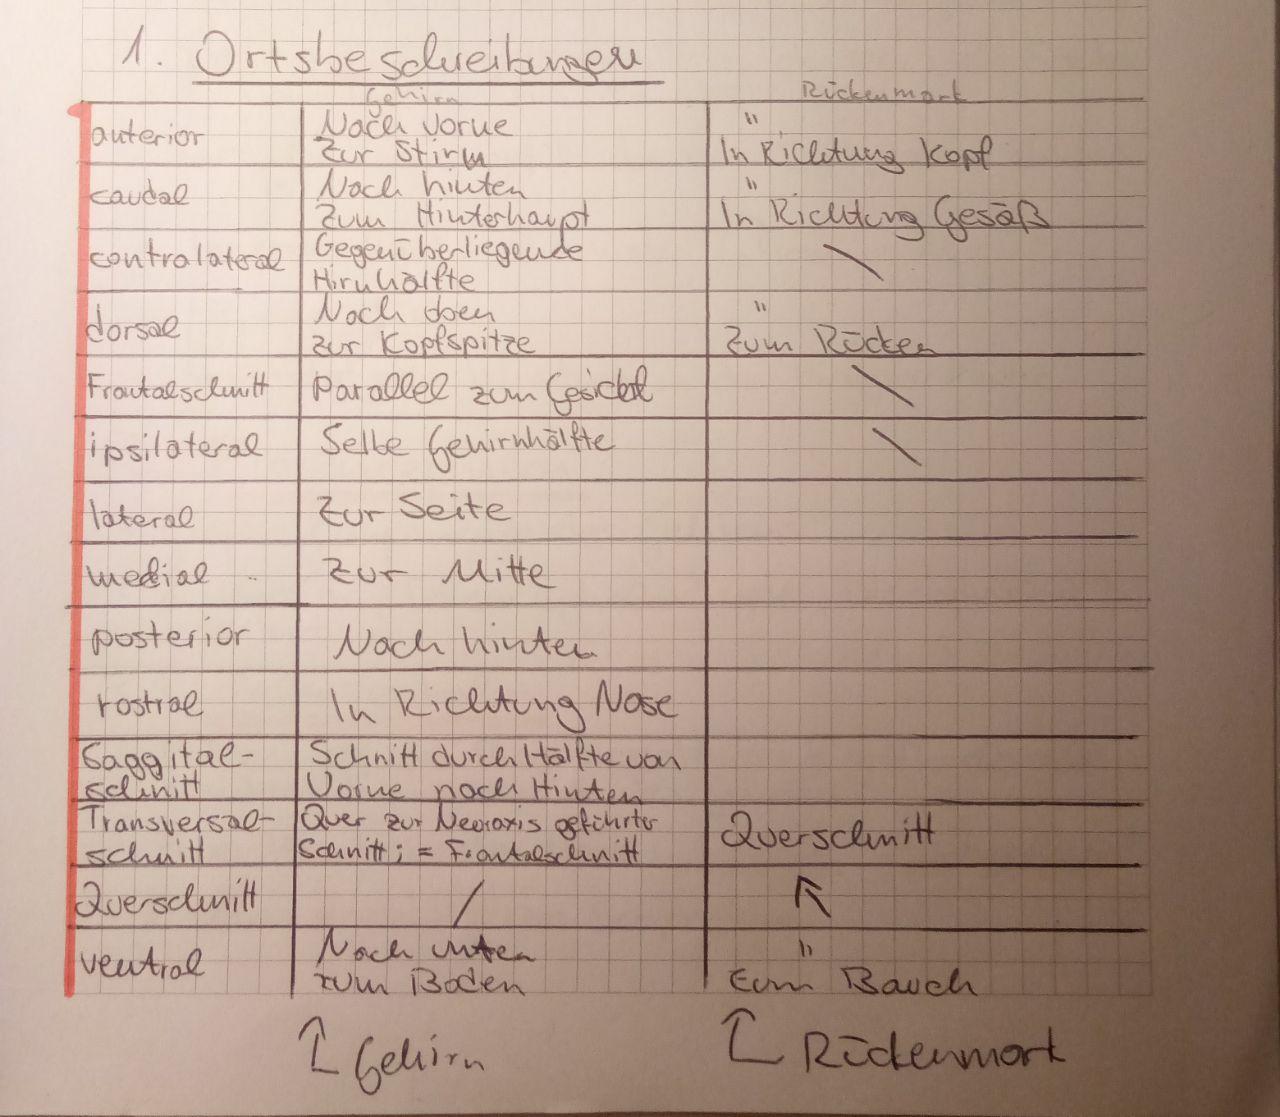 1. Ortsbeschreibungen
Gehirn Rückenmark
anterior Nach vorne "
Zur Stirn In Richtung Kopf
caudal Nach hinten "
Zum Hinterhaupt In Richtung Gesäß
contralateral Gegenüberliegende
Hirnhälfte
dorsal Nach oben "
zur Kopfspitze Zum Rücken
Frontalschnitt Parallel zum Gesicht
ipsilateral Selbe Gehirnhälfte
lateral Zur Seite
medial Zur Mitte
posterior Nach hinten
rostral In Richtung Nase
Saggital- Schnitt durch Hälfte von
schnitt Vorne nach Hinten
Transversal- Quer zur Neoraxis geführter
schnitt Schnitt; = Frontalschnitt Querschnitt
Querschnitt
ventral Nach unten "
zum Boden Zum Bauch
Gehirn Rückenmark